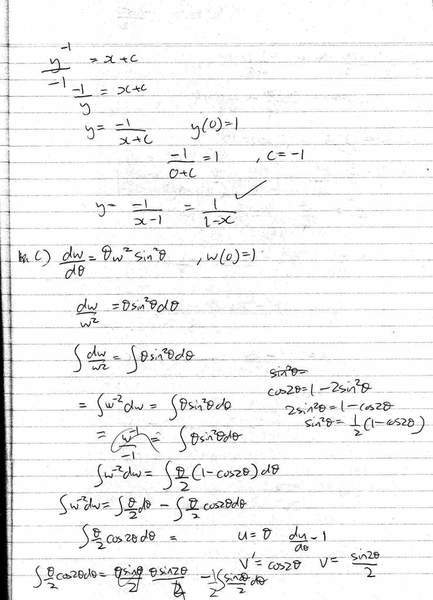 y⁻¹/-1 = x+c
-1/y = x+c
y = -1/(x+c)    y(0)=1
-1/(0+c) = 1 , c = -1
y = -1/(x-1) = 1/(1-x) ✓
c) dw/dθ = θw²sin²θ , w(0)=1
dw/w² = θsin²θdθ
∫dw/w² = ∫θsin²θdθ
sin²θ=
cos2θ = 1-2sin²θ
2sin²θ = 1-cos2θ
sin²θ = 1/2(1-cos2θ)
= ∫w⁻²dw = ∫θsin²θdθ
= w⁻¹/-1 = ∫θsin²θdθ
∫w⁻²dw = ∫θ/2(1-cos2θ)dθ
∫w⁻²dw = ∫θ/2dθ - ∫θ/2cos2θdθ
∫θ/2cos2θdθ =    u=θ    du/dθ-1
v'=cos2θ    v= sin2θ/2
∫θ/2cos2θdθ = θsin2θ/4 -1/2∫sin2θ/2dθ